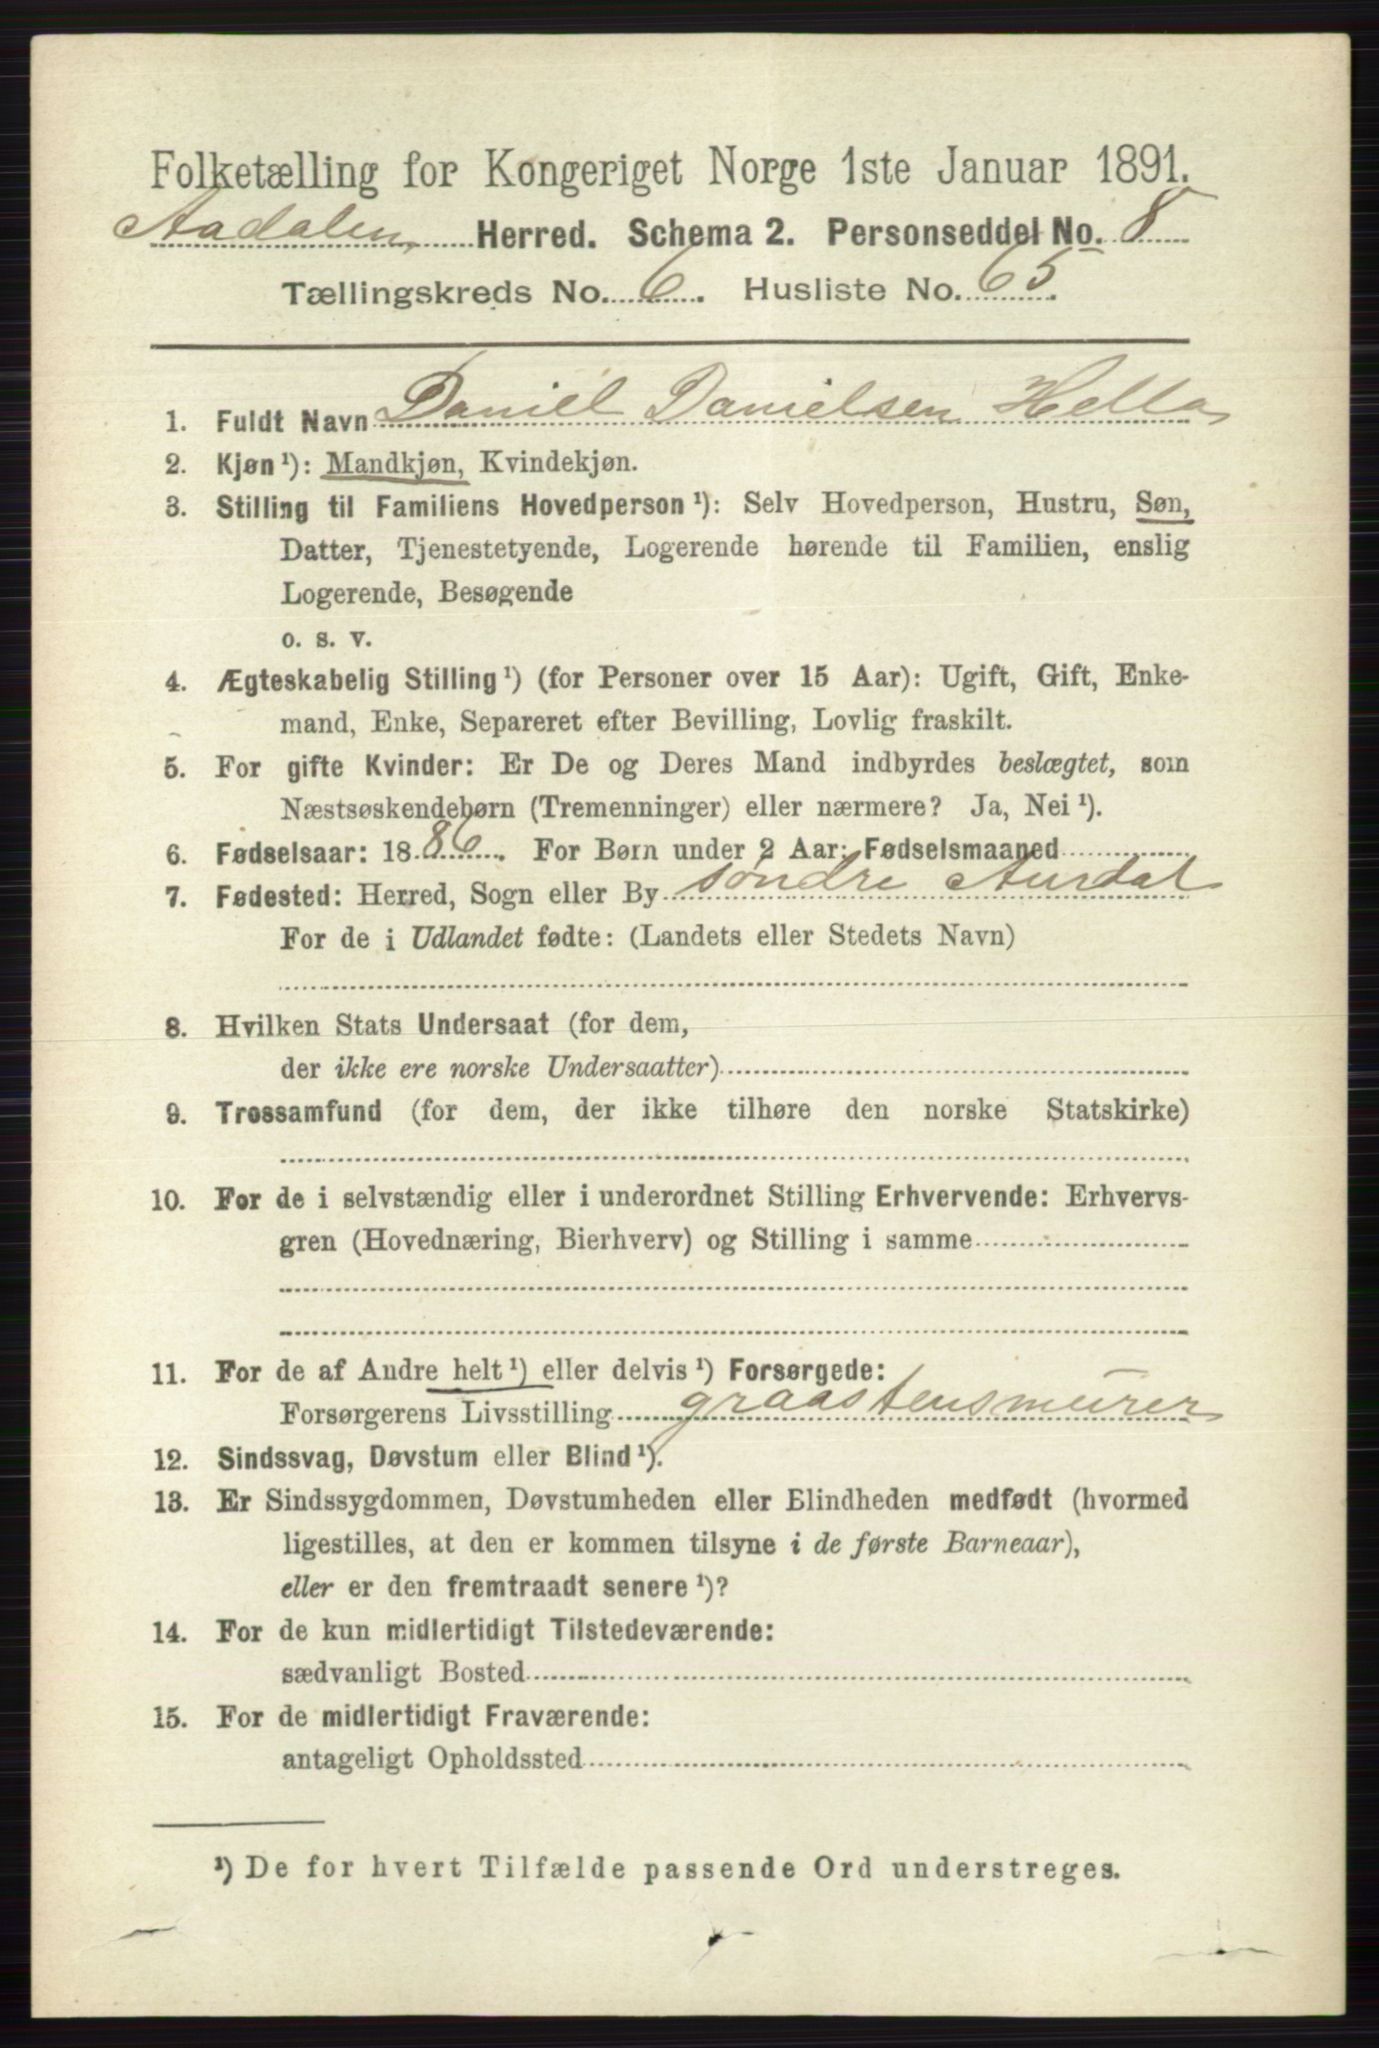 Folketælling for Kongeriget Norge 1ste Januar 1891.
Aadalen Herred. Schema 2. Personseddel No. 8
Tællingskreds No. 6. Husliste No. 65.
1. Fuldt Navn Daniel Danielsen Hella
2. Kjøn¹): Mandkjøn, Kvindekjøn.
3. Stilling til Familiens Hovedperson¹): Selv Hovedperson, Hustru, Søn,
Datter, Tjenestetyende, Logerende hørende til Familien, enslig
Logerende, Besøgende
o. s. v.
4. Ægteskabelig Stilling¹) (for Personer over 15 Aar): Ugift, Gift, Enke-
mand, Enke, Separeret efter Bevilling, Lovlig fraskilt.
5. For gifte Kvinder: Er De og Deres Mand indbyrdes beslægtet, som
Næstsøskendebørn (Tremenninger) eller nærmere? Ja, Nei¹).
6. Fødselsaar: 1886. For Børn under 2 Aar: Fødselsmaaned
7. Fødested: Herred, Sogn eller By søndre Aurdal
For de i Udlandet fødte: (Landets eller Stedets Navn)
8. Hvilken Stats Undersaat (for dem,
der ikke ere norske Undersaatter)
9. Trossamfund (for dem, der ikke tilhøre den norske Statskirke)
10. For de i selvstændig eller i underordnet Stilling Erhvervende: Erhvervs-
gren (Hovednæring, Bierhverv) og Stilling i samme
11. For de af Andre helt¹) eller delvis¹) Forsørgede:
Forsørgerens Livsstilling graastensmurer
12. Sindssvag, Døvstum eller Blind¹).
13. Er Sindssygdommen, Døvstumheden eller Blindheden medfødt (hvormed
ligestilles, at den er kommen tilsyne i de første Barneaar),
eller er den fremtraadt senere¹)?
14. For de kun midlertidigt Tilstedeværende:
sædvanligt Bosted
15. For de midlertidigt Fraværende:
antageligt Opholdssted
¹) De for hvert Tilfælde passende Ord understreges.